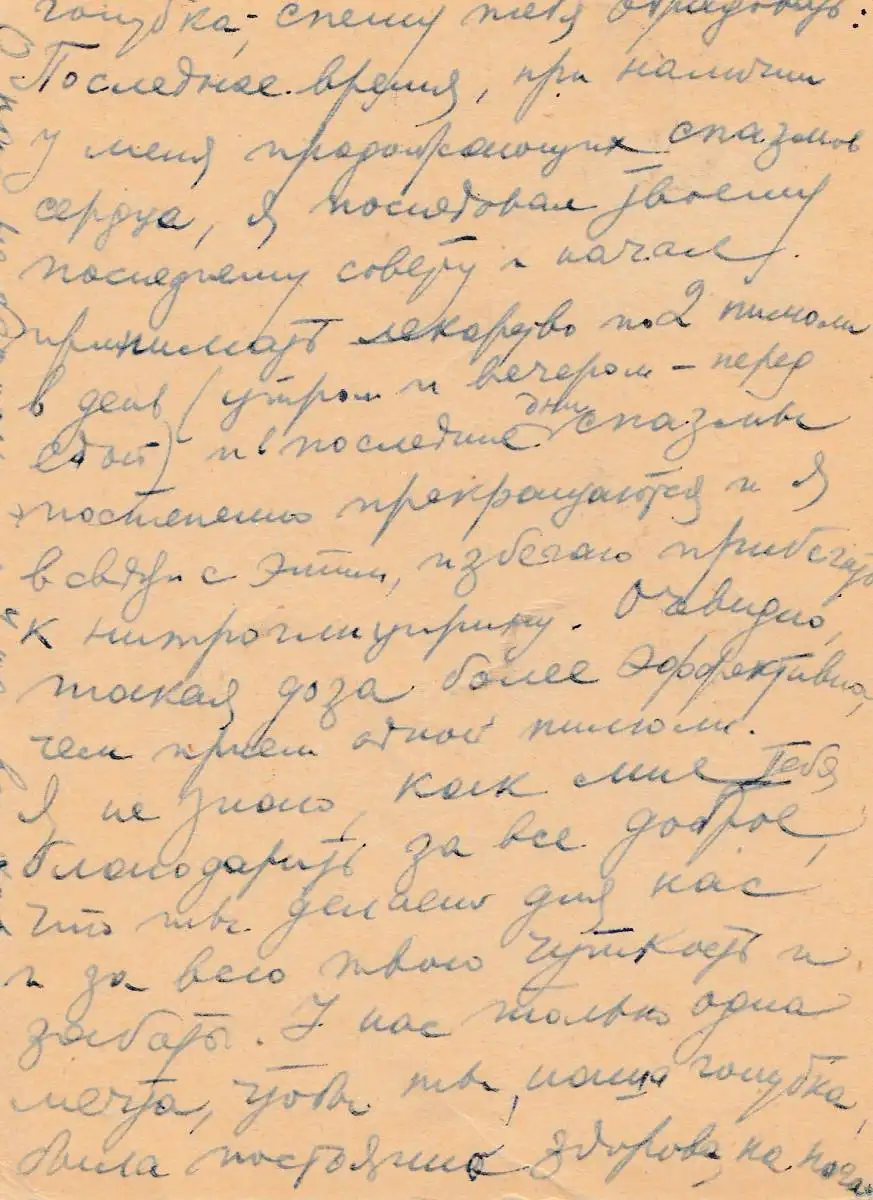 голубка, спешу тебя обрадовать:
Последнее время, при наличии
у меня продолжающихся спазмов
сердца, я последовал твоему
последнему совету и начал
принимать лекарство по 2 пилюли
в день (утром и вечером – перед
едой) и в последние дни спазмы
постепенно прекращаются и я
в связи с этим, избегаю прибегать
к нитроглицерину. Очевидно,
такая доза более эффективна,
чем прием одной пилюли.
Я не знаю, как мне тебя
благодарить за все доброе,
что ты делаешь для нас
и за всю твою чуткость и
заботы. У нас только одна
мечта, чтобы ты, наша голубка,
была постоянно здорова, на